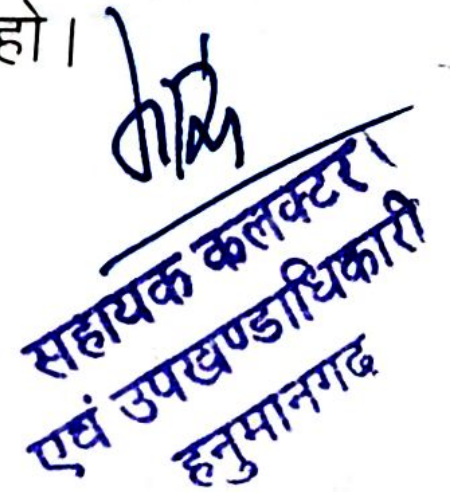 हो।
सहायक कलक्टर।
एवं उपखण्डाधिकारी
हनुमानगढ